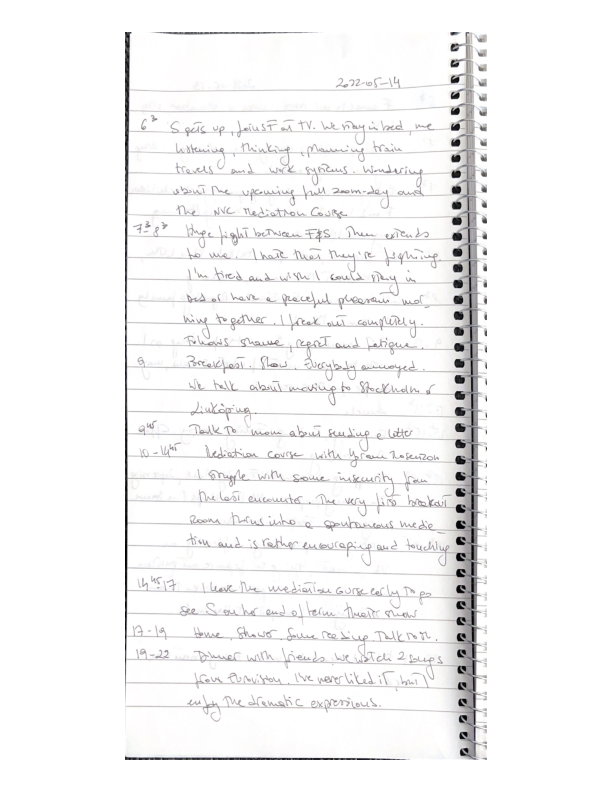 2022-05-14
6³⁰ S gets up, joins F at TV. We stay in bed, me
listening, thinking, planning train
travels and work systems. Wondering
about the upcoming full zoom-day and
the NVC Mediation Course
7³⁰-8³⁰ Huge fight between F&S. Then extends
to me. I hate that they're fighting.
I'm tired and wish I could stay in
bed or have a peaceful pleasant mor-
ning together. I freak out completely.
Follows shame, regret and fatigue.
9 Breakfast. Slow. Everybody annoyed.
We talk about moving to Stockholm or
Linköping.
9⁴⁵ Talk to mom about sending a letter
10-14⁴⁵ Mediation course with Yoram Mosenzon
I struggle with some insecurity from
the last encounter. The very first breakout
room turns into a spontaneous media-
tion and is rather encouraging and touching
14⁴⁵-17 I leave the mediation course early to go
see S on her end of term theatre show
17-19 Home, shower. Some reading. Talk to
19-22 Dinner with friends. We watch 2 songs
from Eurovision. I've never liked it, but I
enjoy the dramatic expressions.